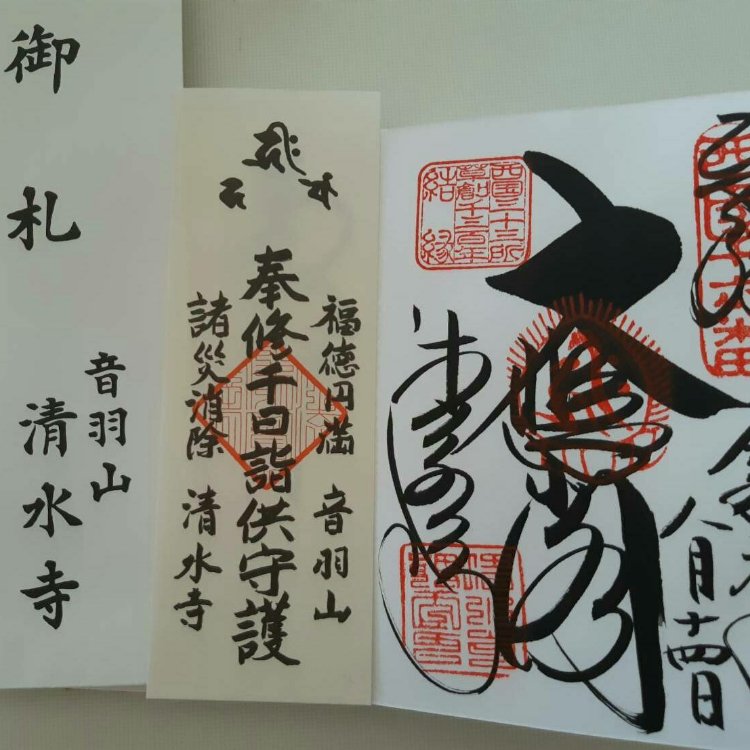 御札
音羽山
清水寺
福徳円満 音羽山
奉修千日詣供守護
諸災消除 清水寺
西国十六番
八月十四日
西国三十三所
草創千三百年
結縁
大悲閣
清水寺